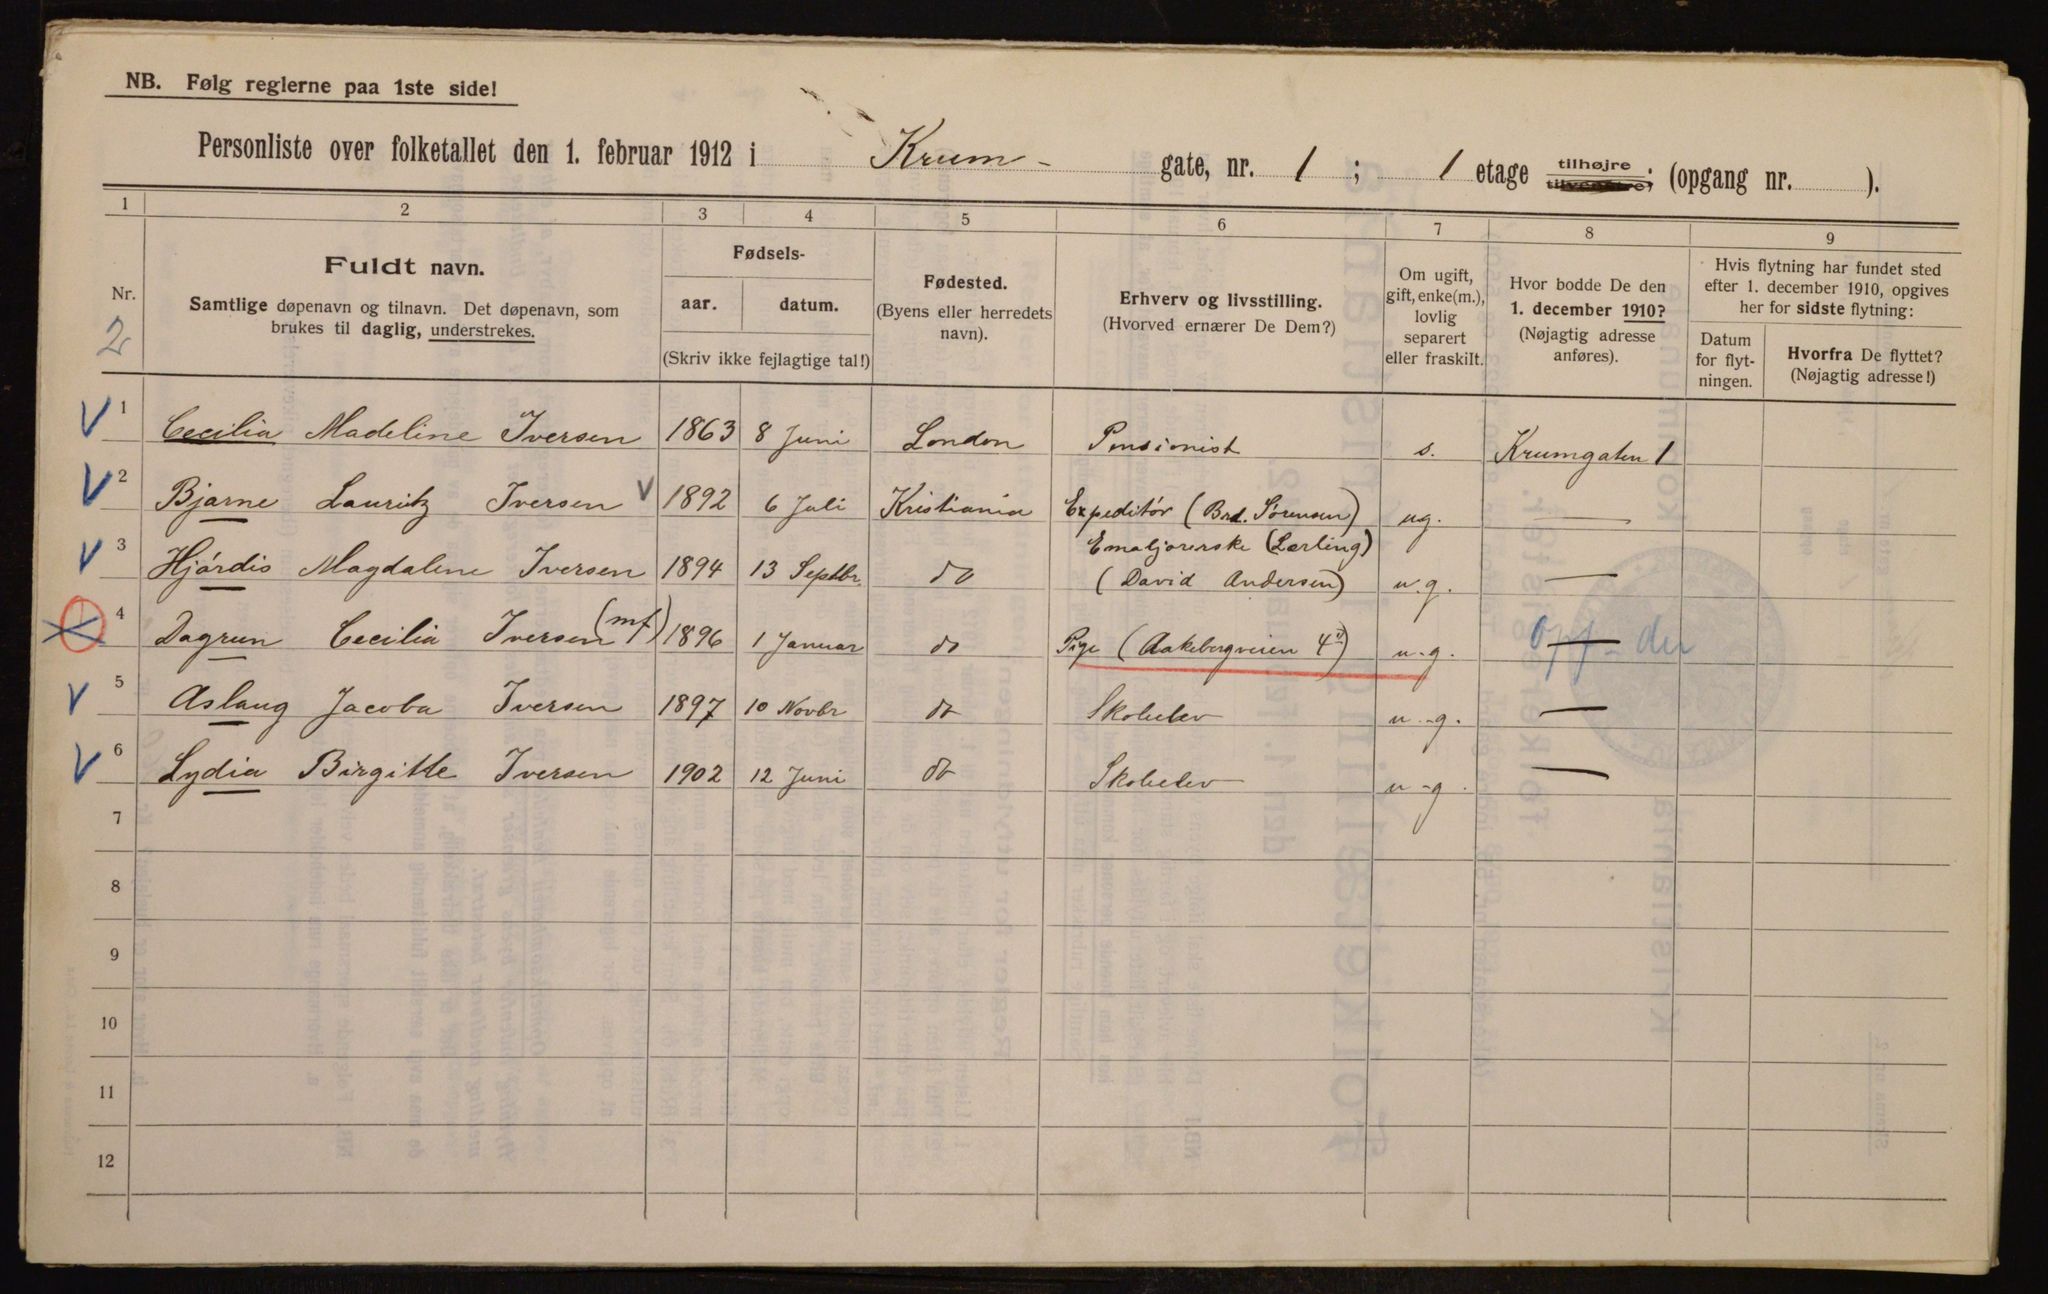 NB. Følg reglerne paa 1ste side!
Personliste over folketallet den 1. februar 1912 i Krum- gate, nr. 1 ; 1 etage tilhøjre. tilvenstre, (opgang nr. ).
1 2 3 4 5 6 7 8 9
Nr. 2
Fuldt navn.
Samtlige døpenavn og tilnavn. Det døpenavn, som
brukes til daglig, understrekes.
Fødsels-
aar. datum.
(Skriv ikke fejlagtige tal!)
Fødested.
(Byens eller herredets
navn).
Erhverv og livsstilling.
(Hvorved ernærer De Dem?)
Om ugift,
gift, enke(m.),
lovlig
separert
eller fraskilt.
Hvor bodde De den
1. december 1910?
(Nøjagtig adresse
anføres).
Hvis flytning har fundet sted
efter 1. december 1910, opgives
her for sidste flytning:
Datum
for flyt-
ningen.
Hvorfra De flyttet?
(Nøjagtig adresse!)
1 Cecilia Madeline Iversen 1863 8 Juni London Pensionist s. Krumgaten 1
2 Bjarne Lauritz Iversen 1892 6 Juli Kristiania Expeditør (Brd. Sørensen) ug. —
3 Hjørdis Magdalene Iversen 1894 13 Septbr do Emaljørerske (Lærling)
(David Andersen) u.g. —
4 Dagrun Cecilia Iversen (mf) 1896 1 Januar do Pige (Aakebergveien 4II) u.g. — Opf. der
5 Aslaug Jacoba Iversen 1897 10 Novbr do Skoleelev u.g. —
6 Lydia Birgitte Iversen 1902 12 Juni do Skoleelev u.g. —
7
8
9
10
11
12